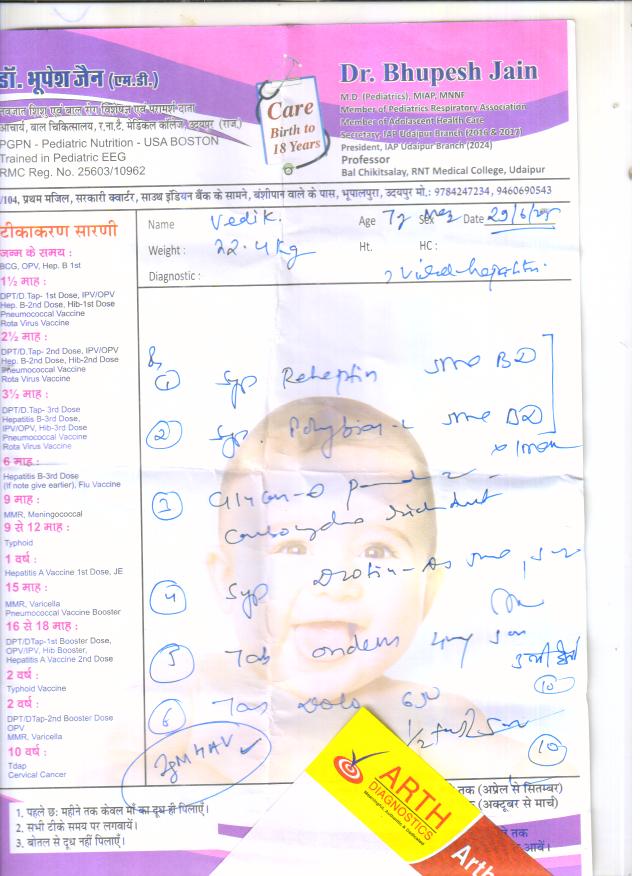 डॉ. भूपेश जैन (एम.डी.)
नवजात शिशु एवं बाल रोग विशेषज्ञ एवं परामर्श दाता
आचार्य, बाल चिकित्सालय, र.ना.टै. मेडिकल कॉलेज, उदयपुर (राज.)
PGPN - Pediatric Nutrition - USA BOSTON
Trained in Pediatric EEG
RMC Reg. No. 25603/10962
Care
Birth to
18 Years
Dr. Bhupesh Jain
M.D. (Pediatrics), MIAP, MNNF
Member of Pediatrics Respiratory Association
Member of Adolascent Health Care
Secretary, IAP Udaipur Branch (2016 & 2017)
President, IAP Udaipur Branch (2024)
Professor
Bal Chikitsalay, RNT Medical College, Udaipur
104, प्रथम मंजिल, सरकारी क्वार्टर, साउथ इंडियन बैंक के सामने, बंशीपान वाले के पास, भूपालपुरा, उदयपुर मो.: 9784247234, 9460690543
टीकाकरण सारणी
जन्म के समय :
BCG, OPV, Hep. B 1st
1½ माह :
DPT/D.Tap- 1st Dose, IPV/OPV
Hep. B-2nd Dose, Hib-1st Dose
Pneumococcal Vaccine
Rota Virus Vaccine
2½ माह :
DPT/D.Tap- 2nd Dose, IPV/OPV
Hep. B-2nd Dose, Hib-2nd Dose
Pneumococcal Vaccine
Rota Virus Vaccine
3½ माह :
DPT/D.Tap- 3rd Dose
Hepatitis B-3rd Dose,
IPV/OPV, Hib-3rd Dose
Pneumococcal Vaccine
Rota Virus Vaccine
6 माह :
Hepatitis B-3rd Dose
(If note give earlier), Flu Vaccine
9 माह :
MMR, Meningococcal
9 से 12 माह :
Typhoid
1 वर्ष :
Hepatitis A Vaccine 1st Dose, JE
15 माह :
MMR, Varicella
Pneumococcal Vaccine Booster
16 से 18 माह :
DPT/DTap-1st Booster Dose,
OPV/IPV, Hib Booster,
Hepatitis A Vaccine 2nd Dose
2 वर्ष :
Typhoid Vaccine
2 वर्ष :
DPT/DTap-2nd Booster Dose
OPV
MMR, Varicella
10 वर्ष :
Tdap
Cervical Cancer
Name Vedik. Age 7y Sex Date 29/6/
Weight : 22.4kg Ht. HC :
Diagnostic : ? Viral hepatitis.
① Syp BD
② Syp. BD
③
④ Syp Drotin-DS
⑤ Tab ondem 4mg
10
⑥ Tab Dolo 650
1/2
10
IgM HAV ✓
1. पहले छः महीने तक केवल माँ का दूध ही पिलाएँ।
2. सभी टीके समय पर लगवायें।
3. बोतल से दूध नहीं पिलाएँ।
तक (अप्रेल से सितम्बर)
(अक्टूबर से मार्च)
तक
आवें।
ARTH
DIAGNOSTICS
Arth